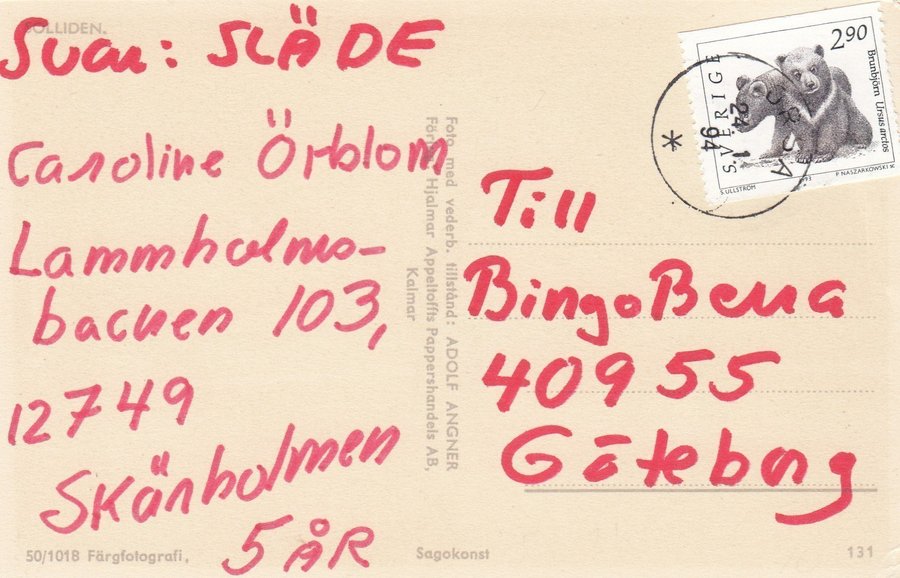 SOLLIDEN.
Svar: SLÄDE
Caroline Örblom
Lammholms-
backen 103,
12749
Skärholmen
5 ÅR
50/101B Färgfotografi,
Foto med vederb. tillstånd: ADOLF ANGNER
Förlag: Hjalmar Appeltoffts Pappershandels AB,
Kalmar
Sagokonst
131
SVERIGE
2.90
Brunbjörn Ursus arctos
S.ULLSTRÖM
P NASZARKOWSKI SC
24 1
94
Till
BingoBerra
40955
Göteborg